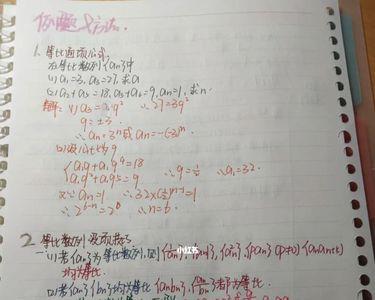 例题&方法.
1. 等比通项公式.
在等比数列{an}中
(1) a₁=3, a₃=27, 求a
(2) a₂+a₅=18, a₃+a₆=9, an=1, 求n.
解: (1) a₃=a₁q² ∴27=3q²
q=±3.
∴an=3ⁿ或an=-(-3)ⁿ.
(2)设公比为q
{a₁q+a₁q⁴=18 ∴q=½ ∴a₁=32.
a₁q²+a₁q⁵=9
又∵an=1 ∴32×(½)ⁿ⁻¹=1
∴2⁶⁻ⁿ=2⁰ ∴n=6.
2 等比数列及项技巧
(1) 若{an}为等比数列, 则 {an}, {|an|}, {an²}, {pan}(p≠0) {an·an+k}
均为等比.
(2) 若{an}{bn}均为等比 {anbn}, {an/bn}都为等比.
小红书